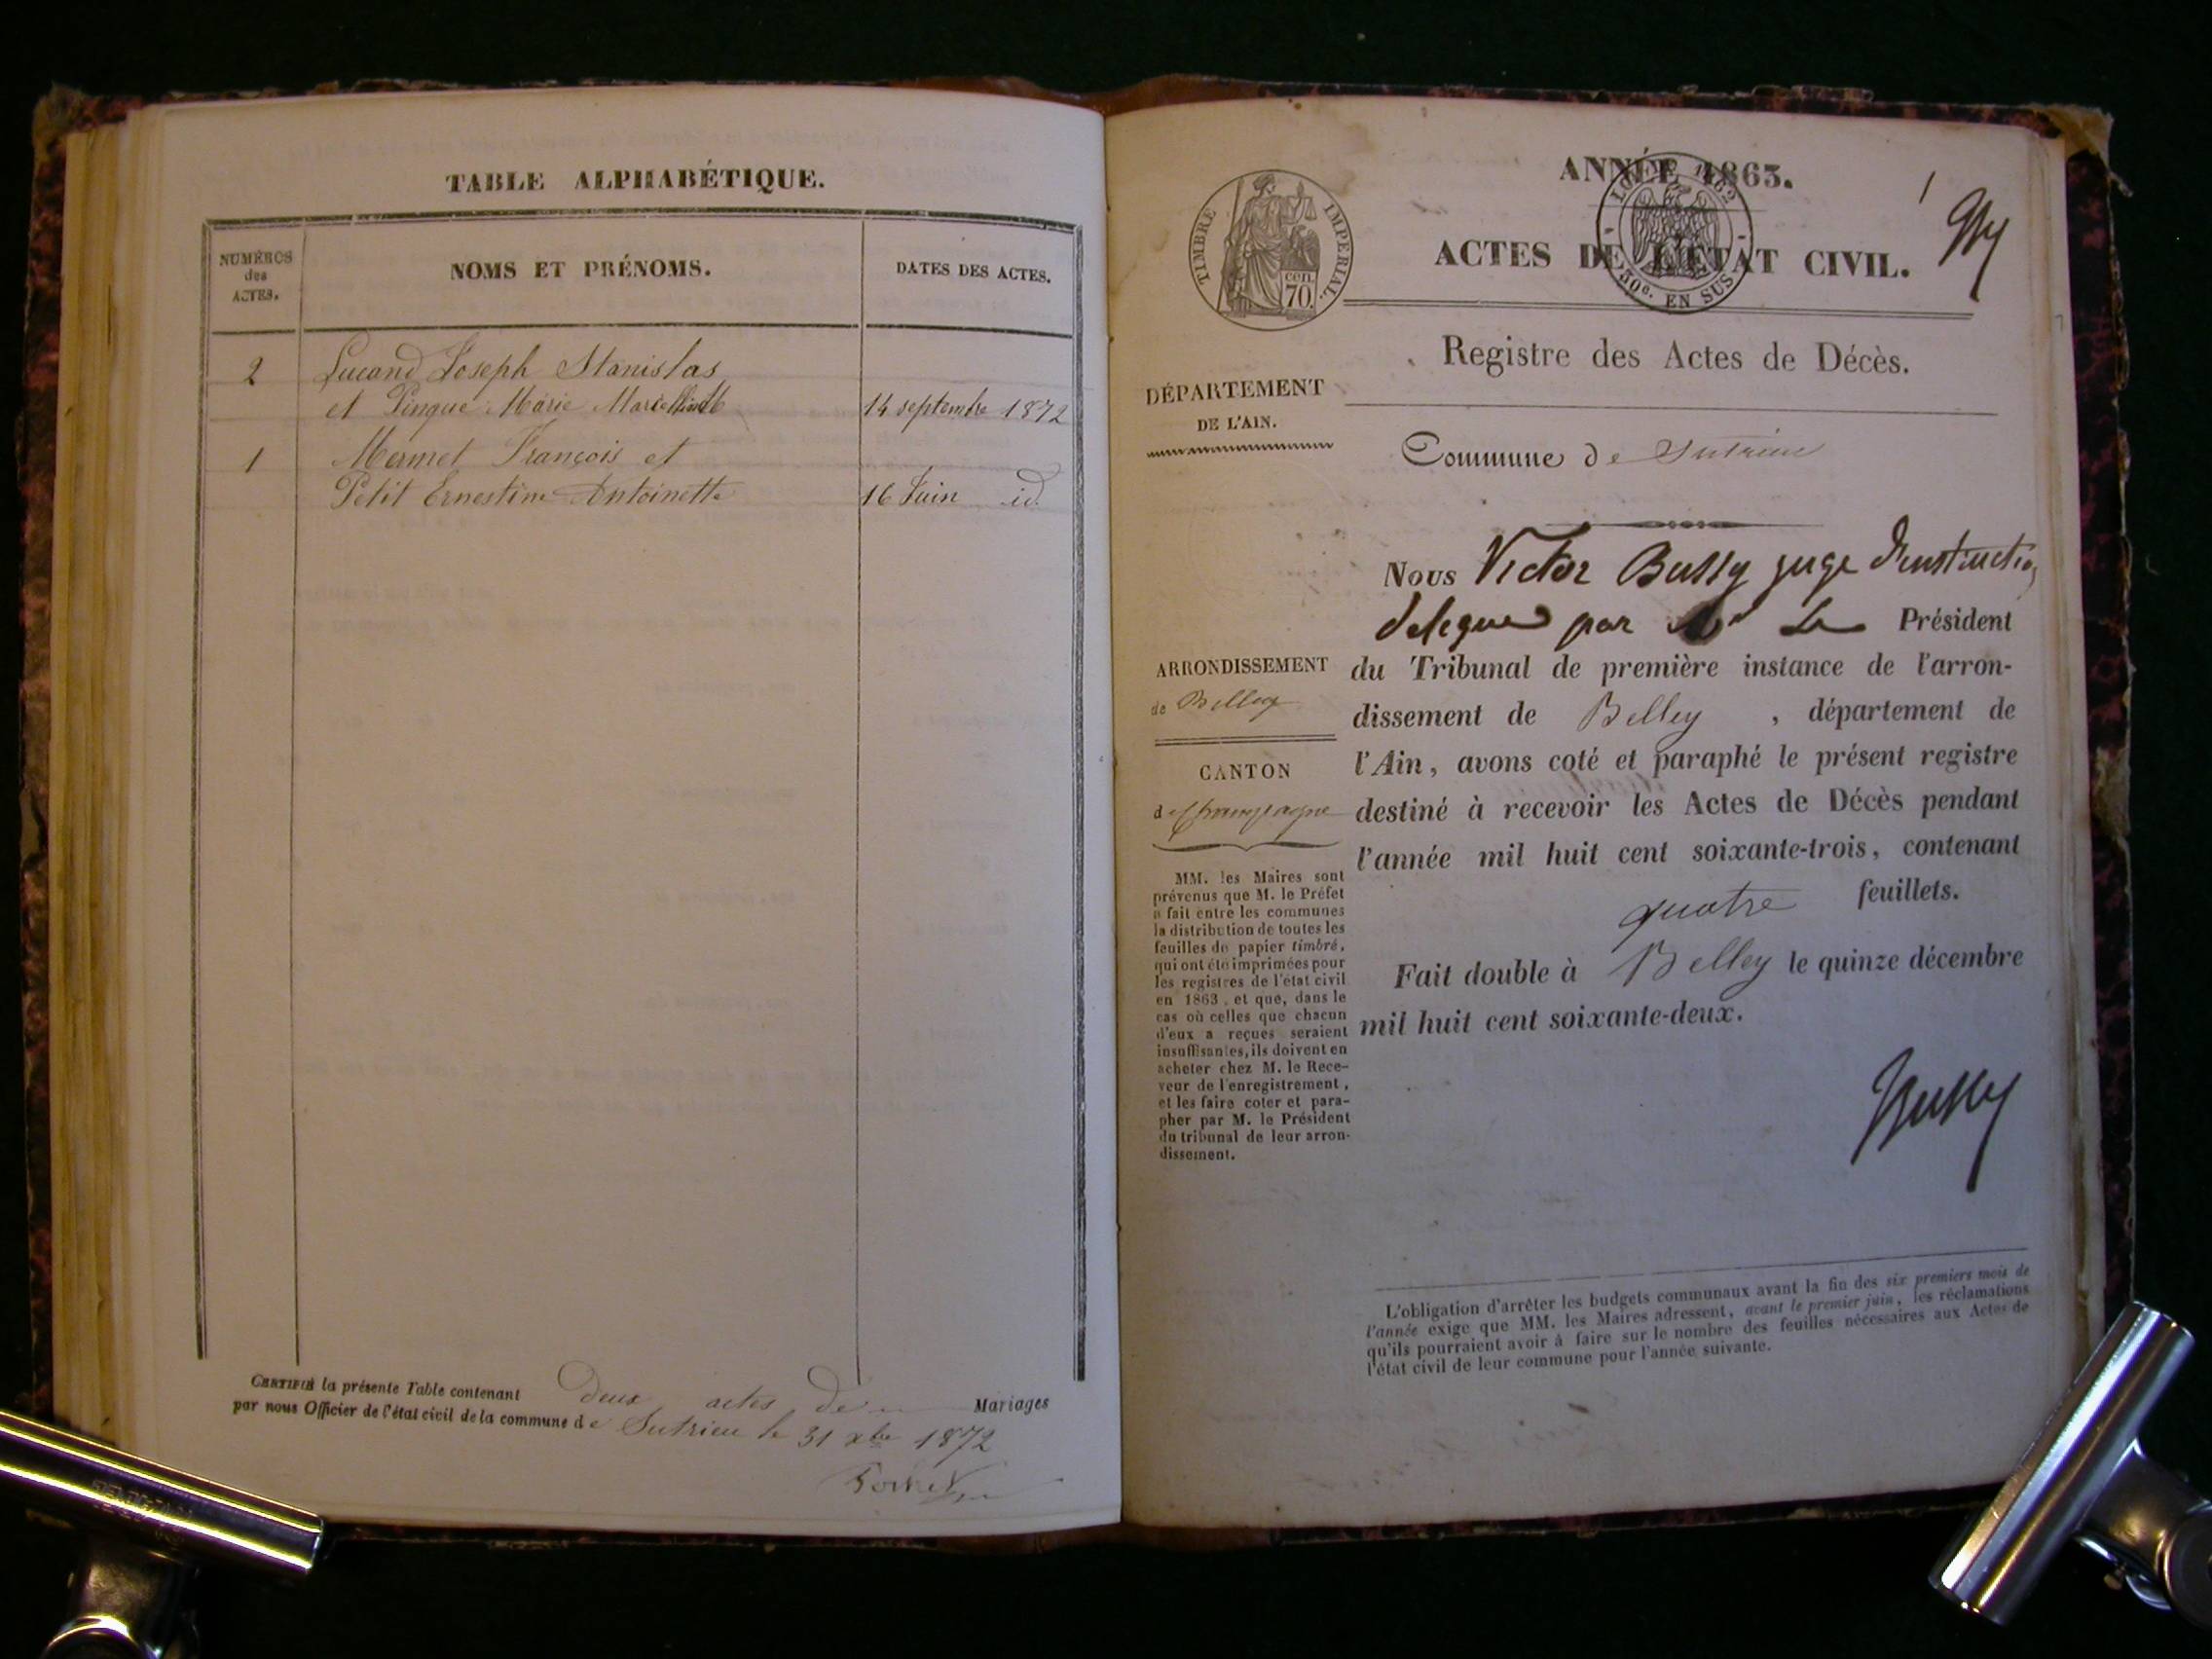 TABLE ALPHABÉTIQUE.
NUMÉROS
des
ACTES.
NOMS ET PRÉNOMS.
DATES DES ACTES.
2 Lucand Joseph Stanislas
et Pingue Marie 14 septembre 1872
1 Mermet François et
Petit Ernestine Antoinette 16 Juin id.
CERTIFIÉ la présente Table contenant deux actes de Mariages
par nous Officier de l'état civil de la commune de Sutrieu le 31 xbre 1872
TIMBRE IMPERIAL.
cen.
70.
ANNÉE 1863.
LOI DE 1862
50c. EN SUS
1
ACTES DE L'ÉTAT CIVIL.
Registre des Actes de Décès.
DÉPARTEMENT
DE L'AIN.
Commune de Sutrieu
Nous Victor Bussy juge d'instruction
delegué par Mr Le Président
ARRONDISSEMENT
de Belley
CANTON
de Champagne
du Tribunal de première instance de l'arron-
dissement de Belley , département de
l'Ain, avons coté et paraphé le présent registre
destiné à recevoir les Actes de Décès pendant
l'année mil huit cent soixante-trois, contenant
quatre feuillets.
Fait double à Belley le quinze décembre
mil huit cent soixante-deux.
Bussy
MM. les Maires sont
prévenus que M. le Préfet
a fait entre les communes
la distribution de toutes les
feuilles de papier timbré,
qui ont été imprimées pour
les registres de l'état civil
en 1863, et que, dans le
cas où celles que chacun
d'eux a reçues seraient
insuffisantes, ils doivent en
acheter chez M. le Rece-
veur de l'enregistrement,
et les faire coter et para-
pher par M. le Président
du tribunal de leur arron-
dissement.
L'obligation d'arrêter les budgets communaux avant la fin des six premiers mois de
l'année exige que MM. les Maires adressent, avant le premier juin, les réclamations
qu'ils pourraient avoir à faire sur le nombre des feuilles nécessaires aux Actes de
l'état civil de leur commune pour l'année suivante.